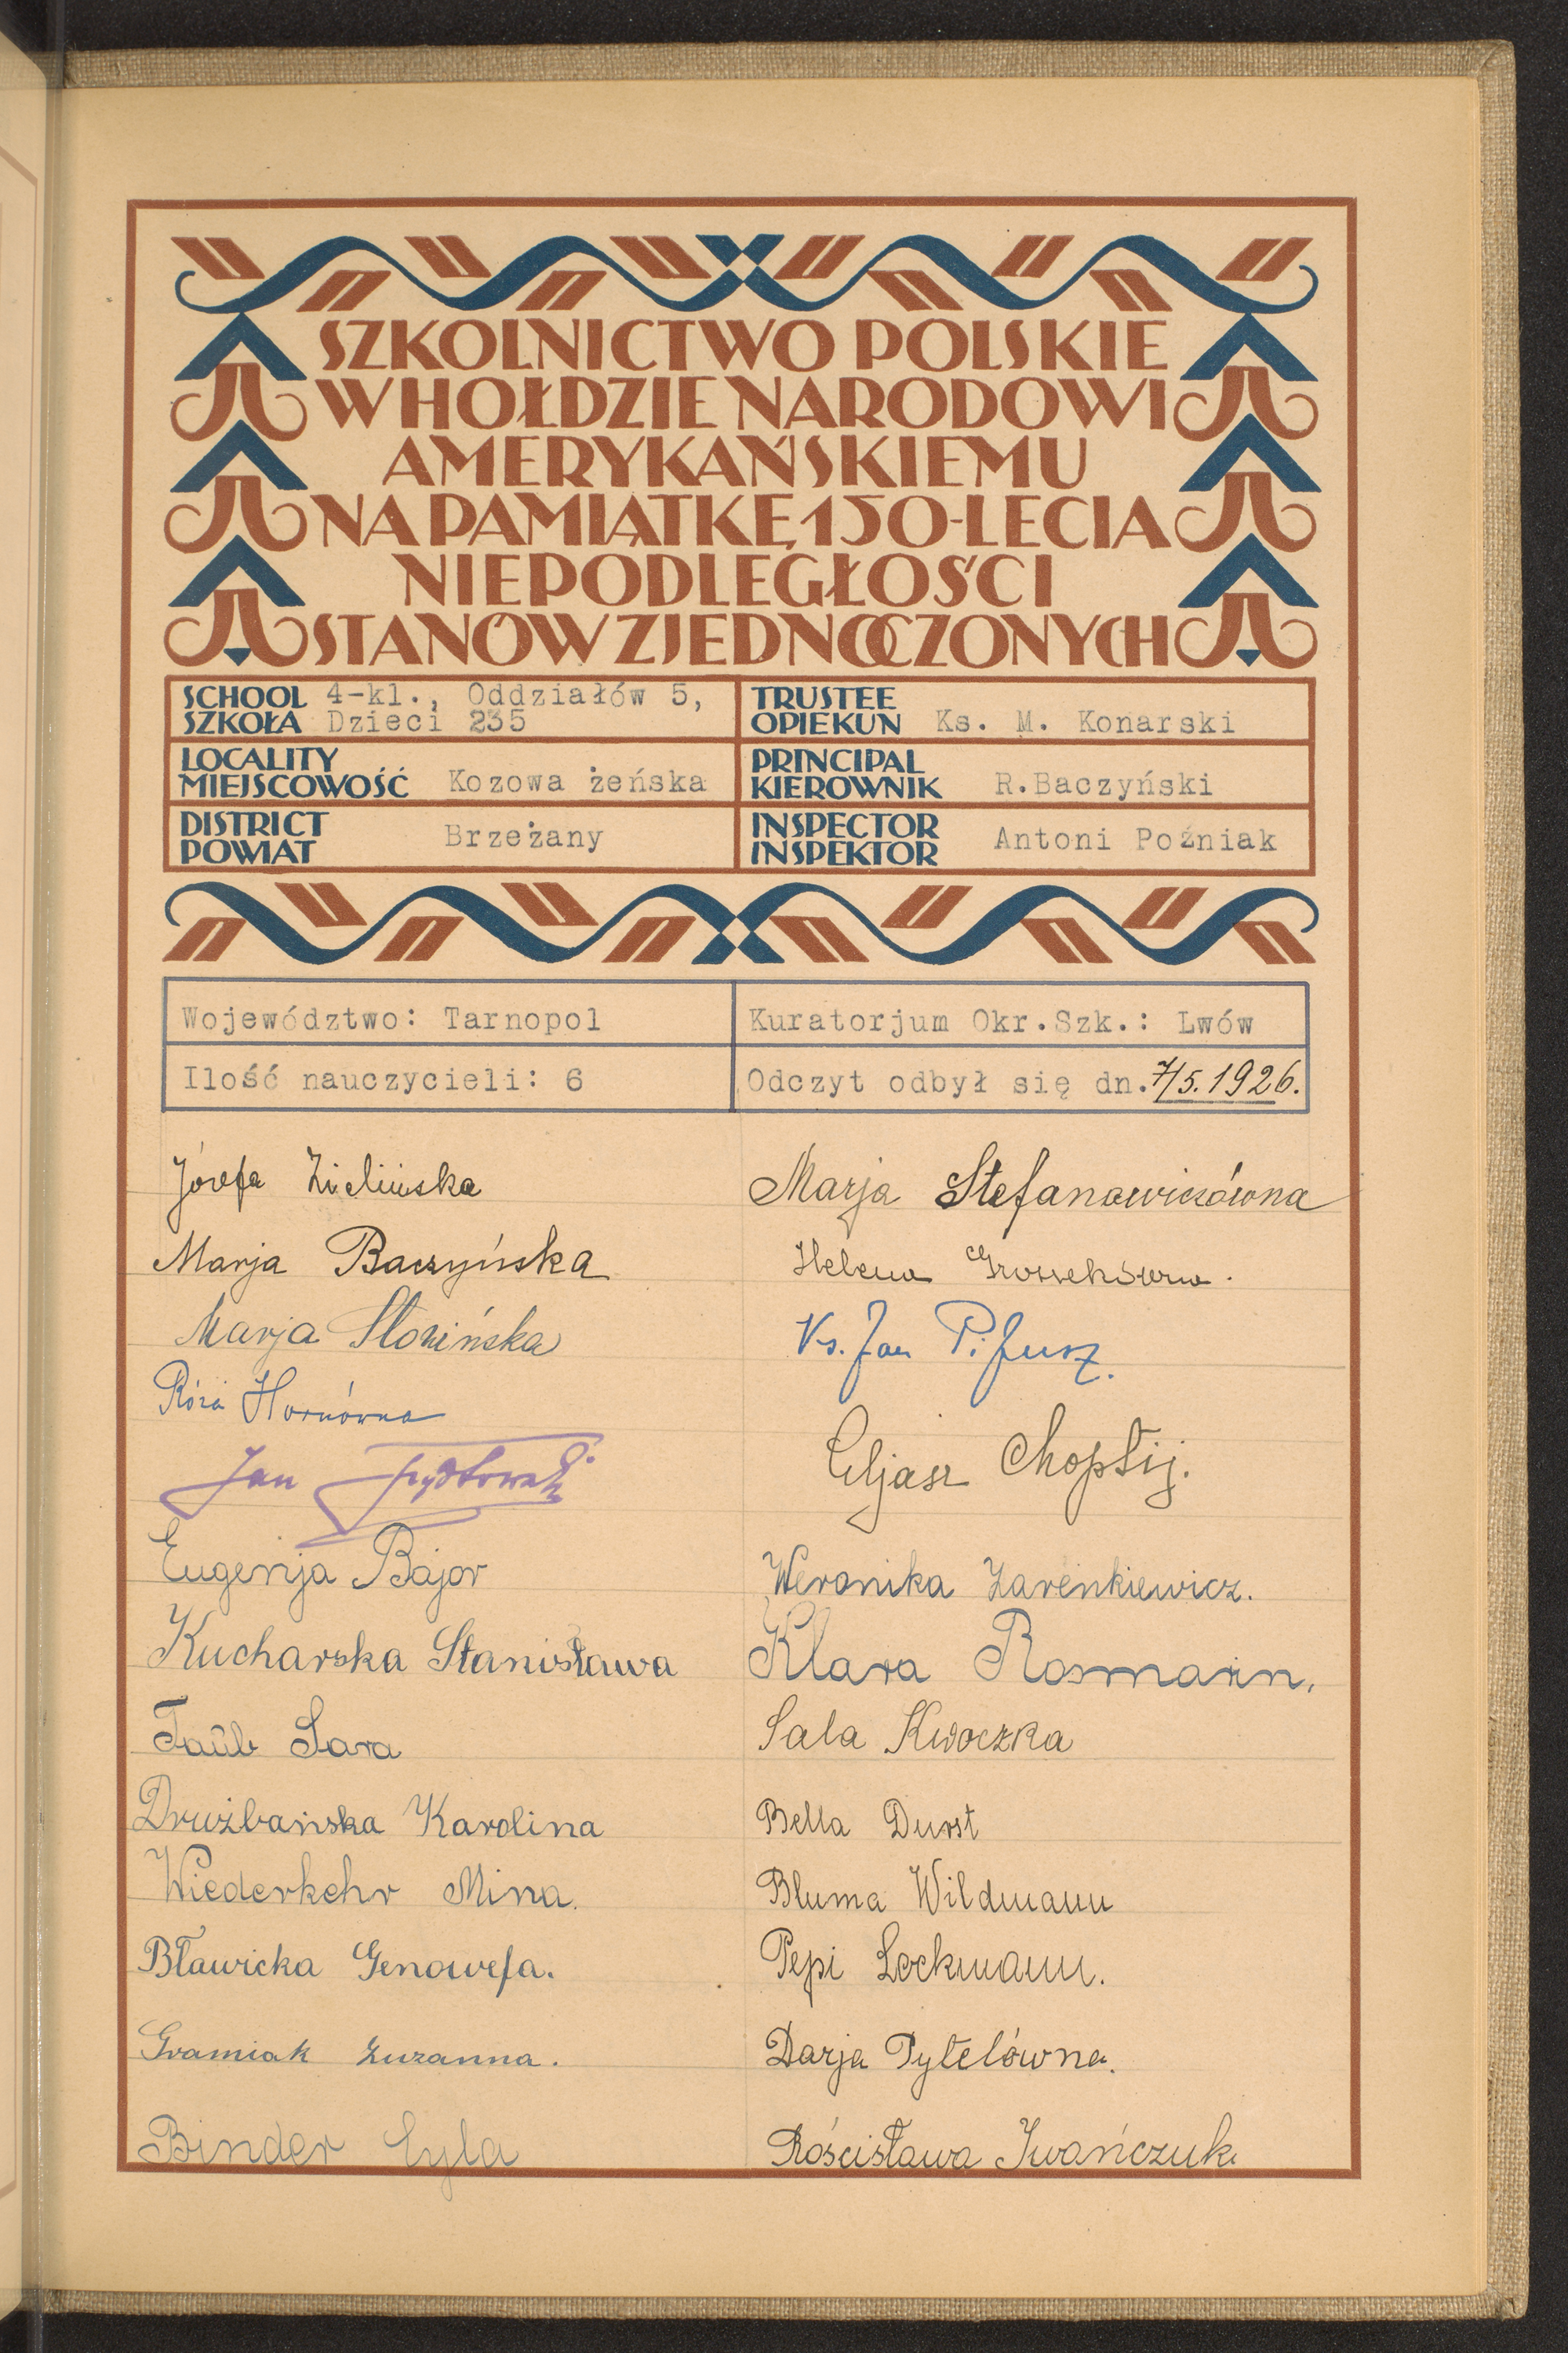 SZKOLNICTWO POLSKIE
W HOŁDZIE NARODOWI
AMERYKAŃSKIEMU
NA PAMIĄTKĘ 150-LECIA
NIEPODLEGŁOŚCI
STANÓW ZJEDNOCZONYCH
SCHOOL SZKOŁA 4-kl., Oddziałów 5, Dzieci 235
TRUSTEE OPIEKUN Ks. M. Konarski
LOCALITY MIEJSCOWOŚĆ Kozowa żeńska
PRINCIPAL KIEROWNIK R.Baczyński
DISTRICT POWIAT Brzeżany
INSPECTOR INSPEKTOR Antoni Poźniak
Województwo: Tarnopol
Kuratorjum Okr.Szk.: Lwów
Ilość nauczycieli: 6
Odczyt odbył się dn. 7/5.1926.
Józefa Zielińska
Marja Stefanowiczówna
Marja Baczyńska
Helena
Marja Słonińska
Ks. Jan
Róża Hornówna
Eljasz Choptij.
Jan
Eugenja Bajor
Weronika Zarenkiewicz.
Kucharska Stanisława
Klara Rosmarin.
Taūb Sara
Sala Kwoczka
Drużbańska Karolina
Bella Durst
Wiederkehr Mina.
Bluma Wildmann
Bławicka Genowefa.
Pepi Lockmann.
Gramiak Zuzanna.
Darja Pytelówna.
Binder Cyla
Rościsława Iwańczuk